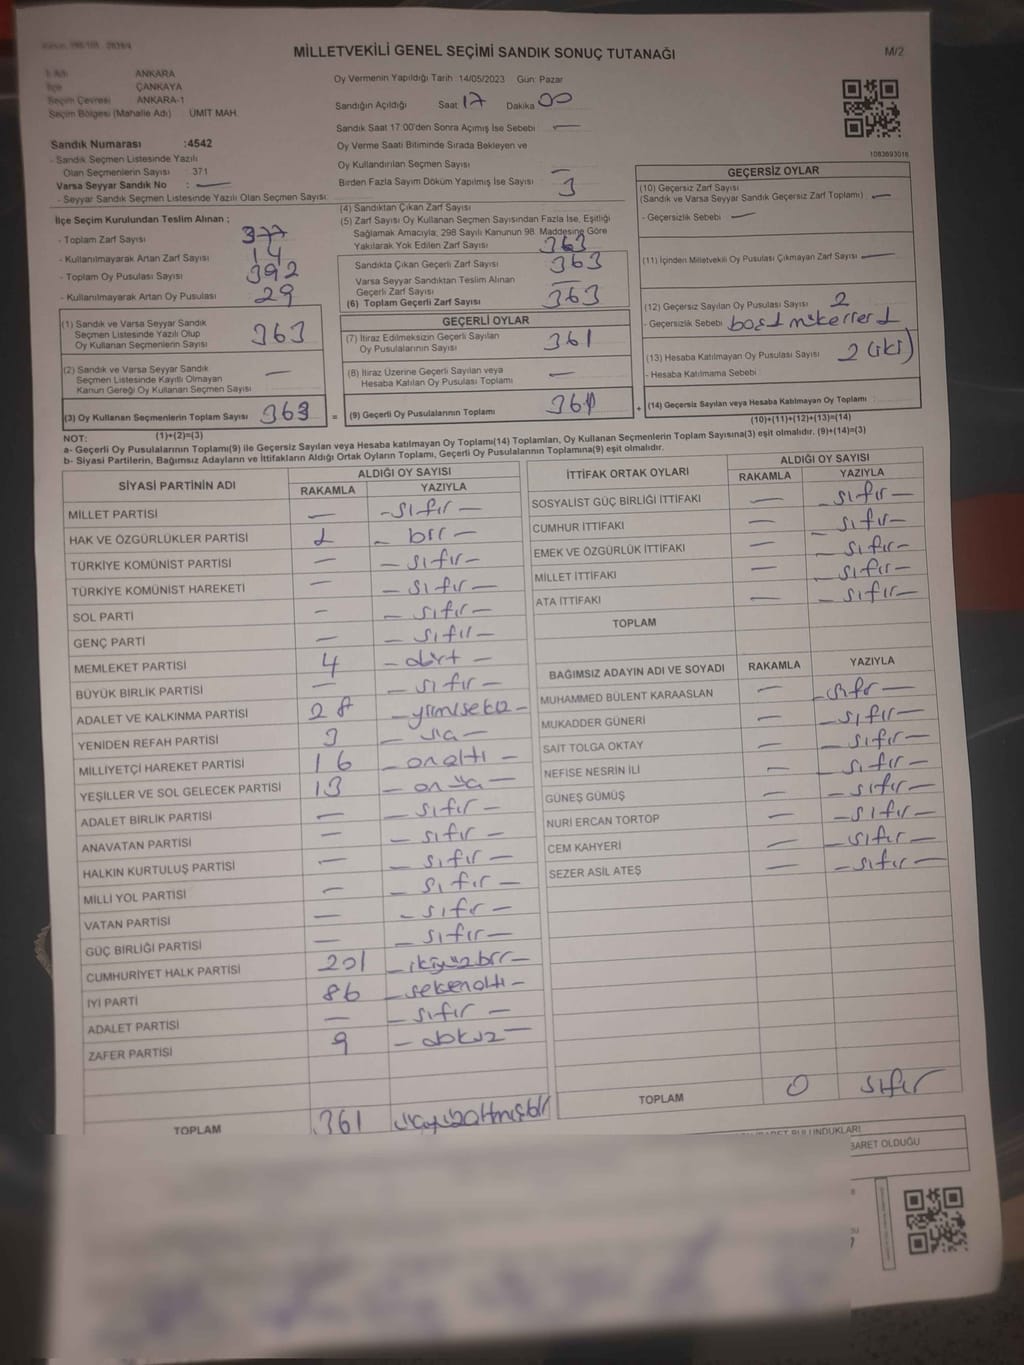 MİLLETVEKİLİ GENEL SEÇİMİ SANDIK SONUÇ TUTANAĞI
M/2
İl Adı ANKARA
İlçe ÇANKAYA
Seçim Çevresi ANKARA-1
Seçim Bölgesi (Mahalle Adı) ÜMİT MAH.
Sandık Numarası :4542
- Sandık Seçmen Listesinde Yazılı
Olan Seçmenlerin Sayısı : 371
Varsa Seyyar Sandık No : —
- Seyyar Sandık Seçmen Listesinde Yazılı Olan Seçmen Sayısı:
Oy Vermenin Yapıldığı Tarih :14/05/2023 Gün: Pazar
Sandığın Açıldığı Saat 17 Dakika 00
Sandık Saat 17:00'den Sonra Açımış İse Sebebi —
Oy Verme Saati Bitiminde Sırada Bekleyen ve
Oy Kullandırılan Seçmen Sayısı —
Birden Fazla Sayım Döküm Yapılmış İse Sayısı 3
1083693016
İlçe Seçim Kurulundan Teslim Alınan :
- Toplam Zarf Sayısı 377
- Kullanılmayarak Artan Zarf Sayısı 14
- Toplam Oy Pusulası Sayısı 392
- Kullanılmayarak Artan Oy Pusulası 29
(1) Sandık ve Varsa Seyyar Sandık
Seçmen Listesinde Yazılı Olup
Oy Kullanan Seçmenlerin Sayısı 363
(2) Sandık ve Varsa Seyyar Sandık
Seçmen Listesinde Kayıtlı Olmayan
Kanun Gereği Oy Kullanan Seçmen Sayısı —
(3) Oy Kullanan Seçmenlerin Toplam Sayısı 363
(1)+(2)=(3)
(4) Sandıktan Çıkan Zarf Sayısı
(5) Zarf Sayısı Oy Kullanan Seçmen Sayısından Fazla İse, Eşitliği
Sağlamak Amacıyla, 298 Sayılı Kanunun 98. Maddesine Göre
Yakılarak Yok Edilen Zarf Sayısı 363
Sandıkta Çıkan Geçerli Zarf Sayısı 363
Varsa Seyyar Sandıktan Teslim Alınan
Geçerli Zarf Sayısı —
(6) Toplam Geçerli Zarf Sayısı 363
GEÇERLİ OYLAR
(7) İtiraz Edilmeksizin Geçerli Sayılan
Oy Pusulalarının Sayısı 361
(8) İtiraz Üzerine Geçerli Sayılan veya
Hesaba Katılan Oy Pusulası Toplamı —
= (9) Geçerli Oy Pusulalarının Toplamı 361
GEÇERSİZ OYLAR
(10) Geçersiz Zarf Sayısı
(Sandık ve Varsa Seyyar Sandık Geçersiz Zarf Toplamı) —
- Geçersizlik Sebebi —
(11) İçinden Milletvekili Oy Pusulası Çıkmayan Zarf Sayısı —
(12) Geçersiz Sayılan Oy Pusulası Sayısı 2
- Geçersizlik Sebebi boş1 mükerrer 1
(13) Hesaba Katılmayan Oy Pusulası Sayısı 2 (iki)
- Hesaba Katılmama Sebebi
+ (14) Geçersiz Sayılan veya Hesaba Katılmayan Oy Toplamı
(10)+(11)+(12)+(13)=(14)
NOT:
a- Geçerli Oy Pusulalarının Toplamı(9) ile Geçersiz Sayılan veya Hesaba katılmayan Oy Toplamı(14) Toplamları, Oy Kullanan Seçmenlerin Toplam Sayısına(3) eşit olmalıdır. (9)+(14)=(3)
b- Siyasi Partilerin, Bağımsız Adayların ve İttifakların Aldığı Ortak Oyların Toplamı, Geçerli Oy Pusulalarının Toplamına(9) eşit olmalıdır.
SİYASİ PARTİNİN ADI
ALDIĞI OY SAYISI
RAKAMLA YAZIYLA
MİLLET PARTİSİ — -sıfır—
HAK VE ÖZGÜRLÜKLER PARTİSİ 1 — bir —
TÜRKİYE KOMÜNİST PARTİSİ — — sıfır—
TÜRKİYE KOMÜNİST HAREKETİ — — sıfır—
SOL PARTİ — — sıfır—
GENÇ PARTİ — — sıfır—
MEMLEKET PARTİSİ 4 — dört —
BÜYÜK BİRLİK PARTİSİ — — sıfır—
ADALET VE KALKINMA PARTİSİ 28 —yirmisekiz—
YENİDEN REFAH PARTİSİ 3 — üç —
MİLLİYETÇİ HAREKET PARTİSİ 16 — onaltı —
YEŞİLLER VE SOL GELECEK PARTİSİ 13 — onüç —
ADALET BİRLİK PARTİSİ — — sıfır —
ANAVATAN PARTİSİ — — sıfır —
HALKIN KURTULUŞ PARTİSİ — — sıfır —
MİLLİ YOL PARTİSİ — — sıfır —
VATAN PARTİSİ — — sıfır —
GÜÇ BİRLİĞİ PARTİSİ — — sıfır—
CUMHURİYET HALK PARTİSİ 201 —ikiyüzbir—
İYİ PARTİ 86 —seksenaltı—
ADALET PARTİSİ — — sıfır —
ZAFER PARTİSİ 9 — dokuz —
TOPLAM 361 üçyüzaltmışbir
İTTİFAK ORTAK OYLARI
ALDIĞI OY SAYISI
RAKAMLA YAZIYLA
SOSYALİST GÜÇ BİRLİĞİ İTTİFAKI — — sıfır—
CUMHUR İTTİFAKI — — sıfır—
EMEK VE ÖZGÜRLÜK İTTİFAKI — — sıfır—
MİLLET İTTİFAKI — — sıfır—
ATA İTTİFAKI — — sıfır—
TOPLAM
BAĞIMSIZ ADAYIN ADI VE SOYADI RAKAMLA YAZIYLA
MUHAMMED BÜLENT KARAASLAN — —sıfır—
MUKADDER GÜNERİ — —sıfır—
SAİT TOLGA OKTAY — —sıfır—
NEFİSE NESRİN İLİ — —sıfır—
GÜNEŞ GÜMÜŞ — —sıfır—
NURİ ERCAN TORTOP — —sıfır—
CEM KAHYERİ — —sıfır—
SEZER ASIL ATEŞ — —sıfır—
TOPLAM 0 sıfır
BULUNDUKLARI
İBARET OLDUĞU